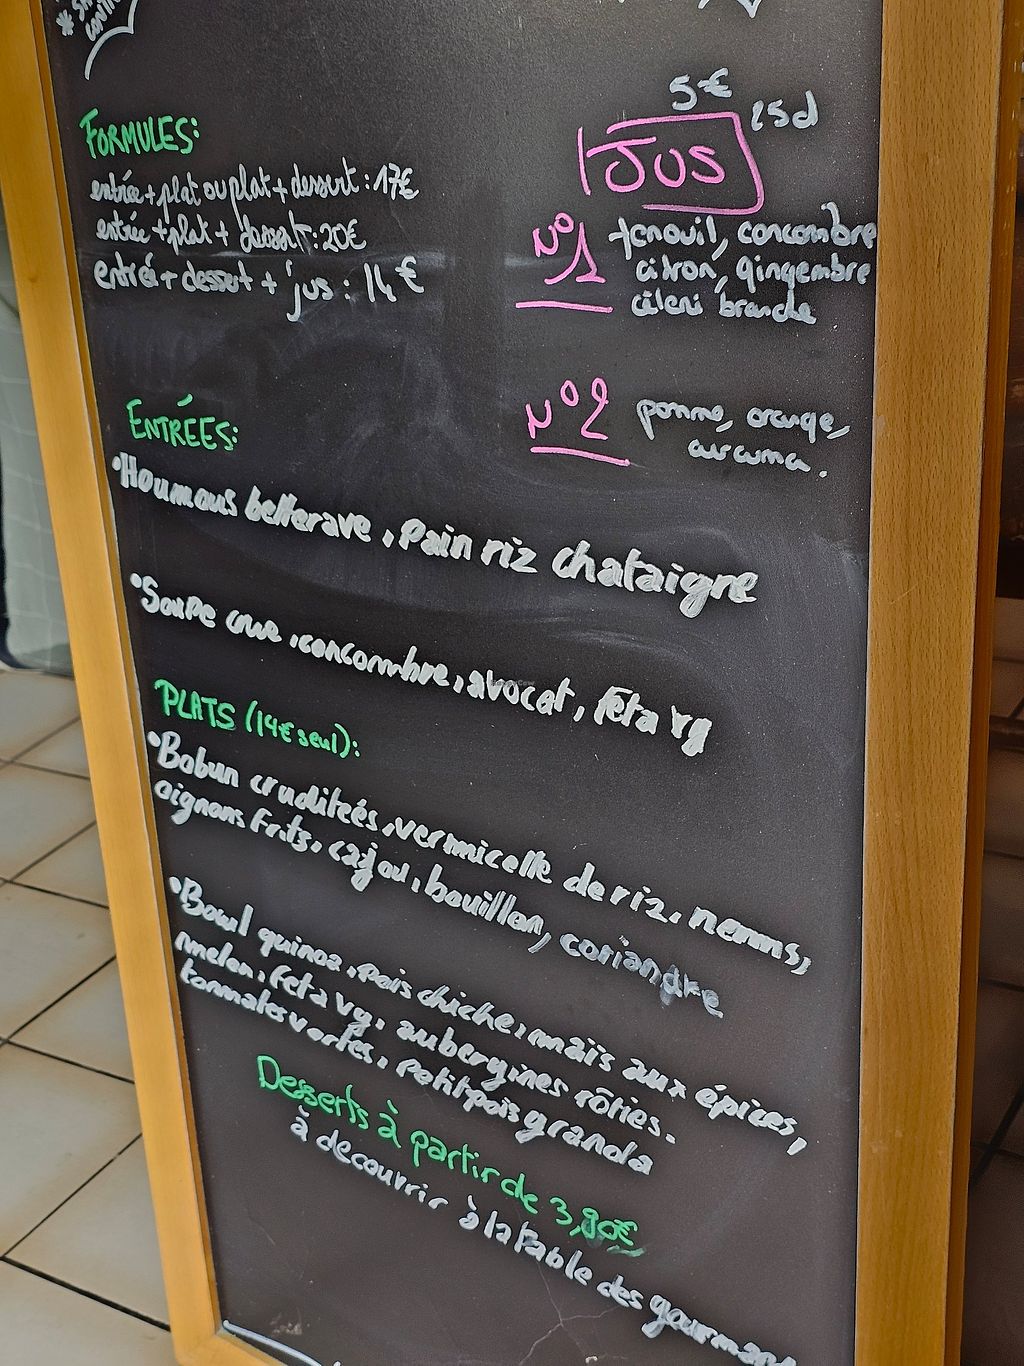 FORMULES:
entrée + plat ou plat + dessert : 17€
entrée + plat + dessert : 20€
entrée + dessert + jus : 14€
5€
25cl
JUS
N°1
fenouil, concombre
citron, gingembre
céleri branche
N°2
pomme, orange,
curcuma.
ENTRÉES:
•Houmous betterave, Pain riz chataigre
•Soupe crue, concombre, avocat, fêta vg
PLATS (14€ seul):
•Bobun cruditeés, vermicelle de riz, nemms,
oignons frits, cajou, bouillon, coriandre
•Bowl quinoa, pois chiche, maïs aux épices,
melon, feta vg, aubergines rôties.
tommates vertes, petit pois granola
Desserts à partir de 3,90€
à découvrir à la table des gourmand